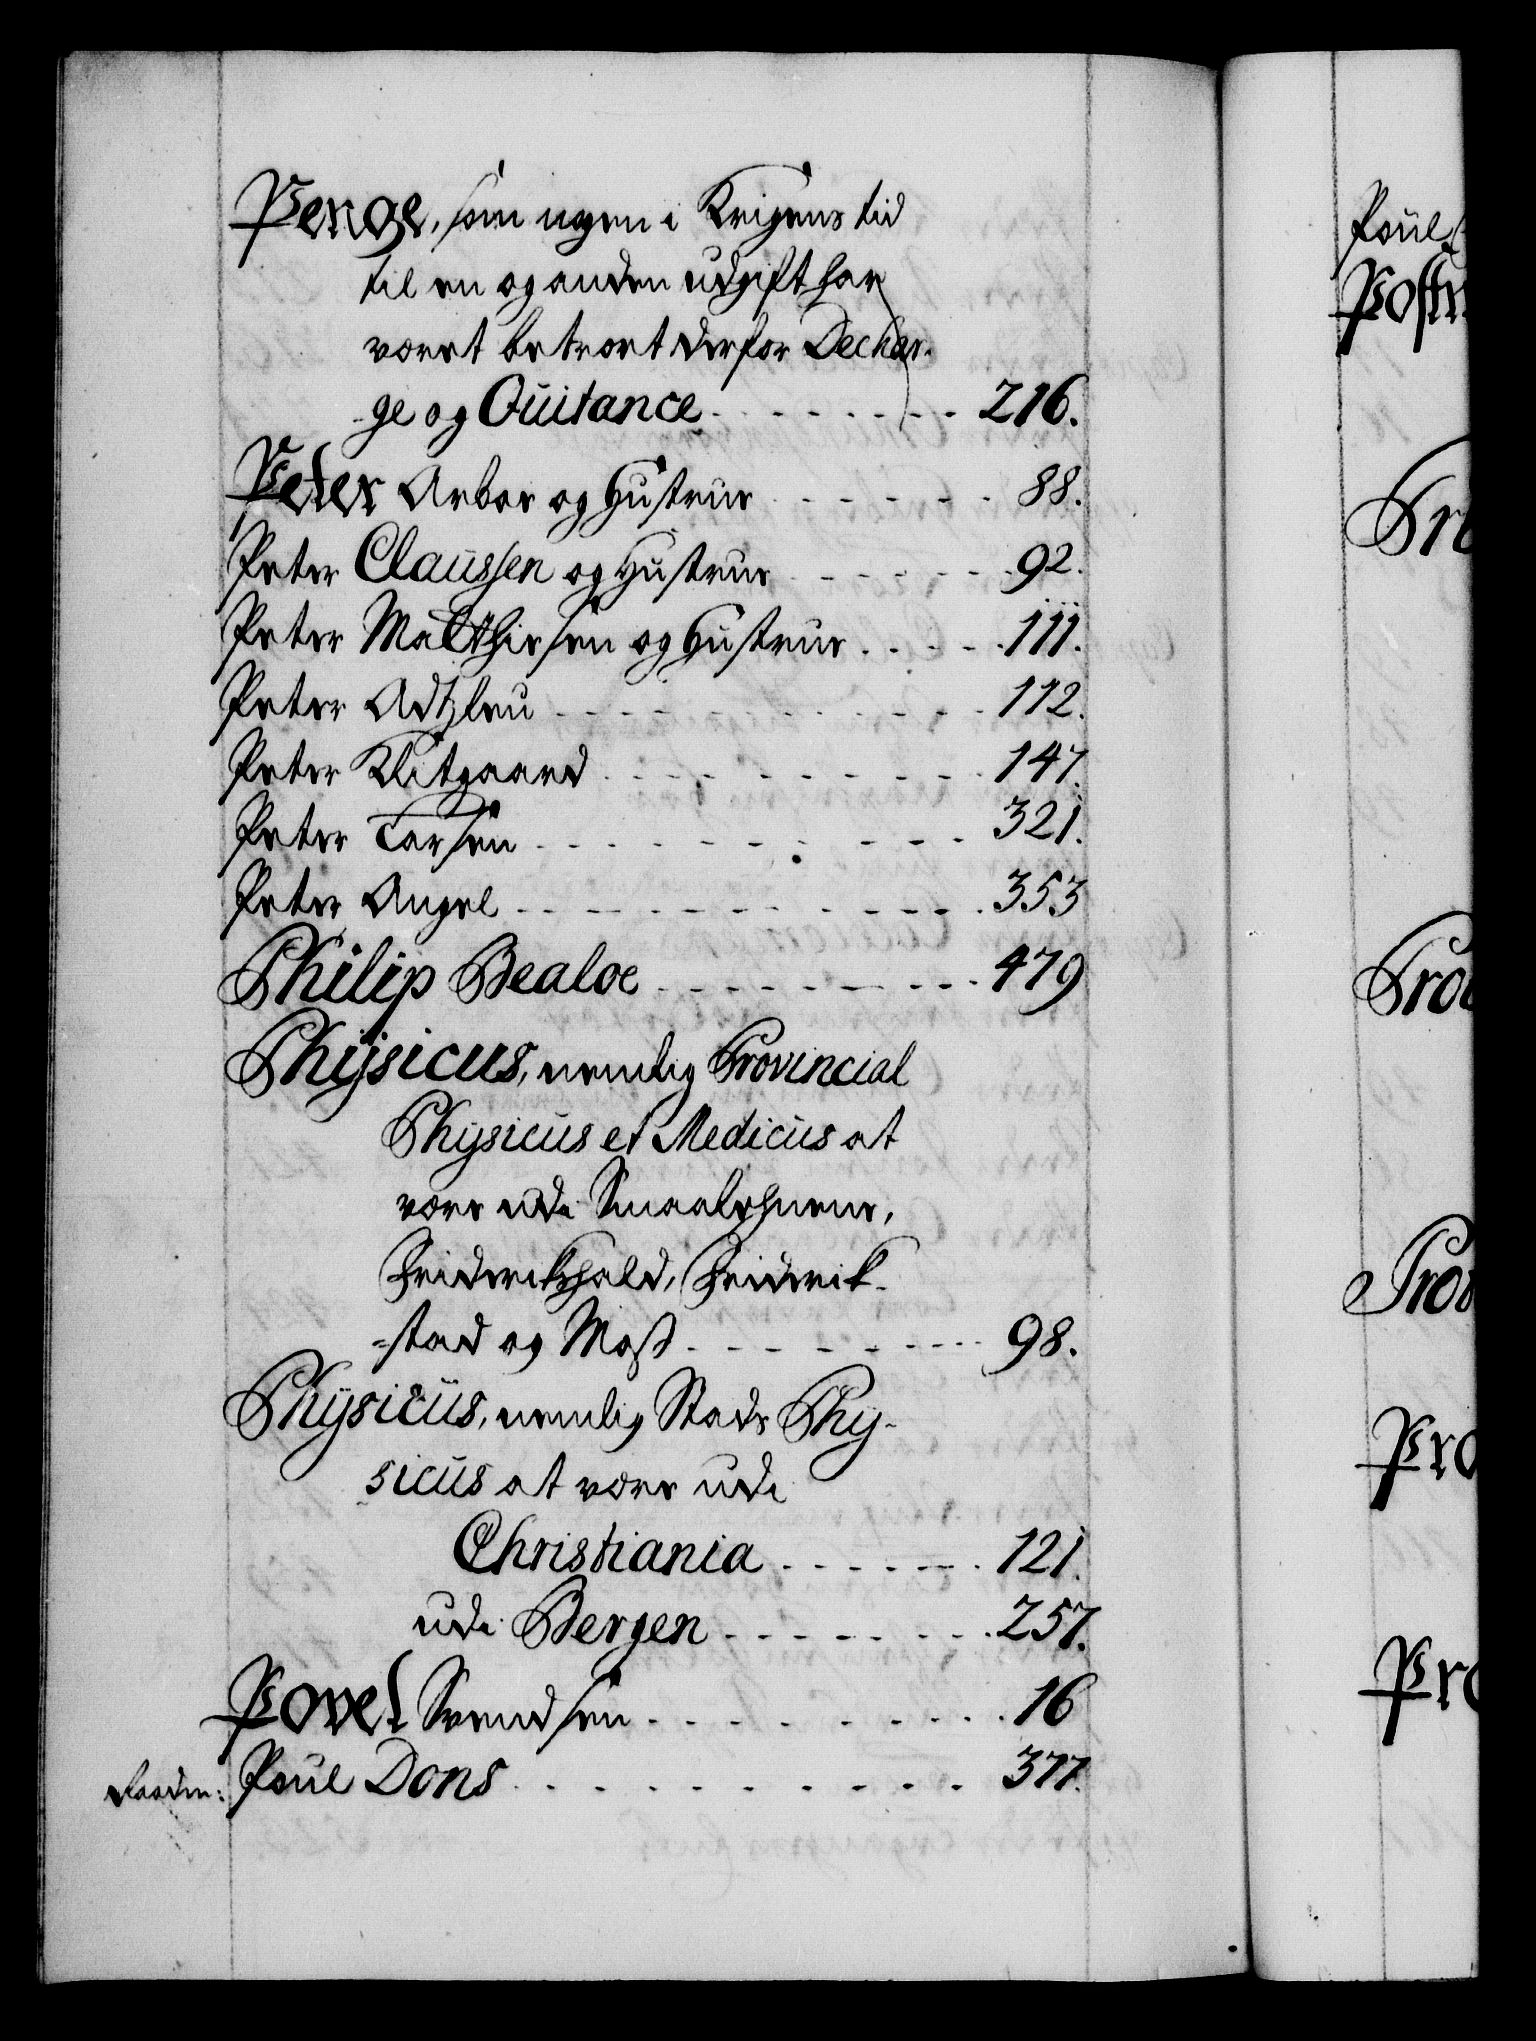 Penge, som ugen i Krigens tid
til en og anden udgift har
været betroet derfor Dechar-
ge og Quitance 216.
Peter Arbor og Hustrue 88.
Peter Claussen og Hustrue 92.
Peter Matthiesen og Hustrue 111.
Peter Adtzleu 112.
Peter Klitgaard 147.
Peter Torsen 321.
Peter Angel 353
Philip Bealoe 479
Physicus, nemlig Provincial
Physicus et Medicus at
være udi Smaalehnene,
Friderikshald, Friderik-
-stad og Moss 98.
Physicus, nemlig Stads Phy-
sicus at være udi
Christiania 121.
udi Bergen 257.
Povel Svendsen 16
Poul Dons 377.
Poul
Postm
Pro
Pro